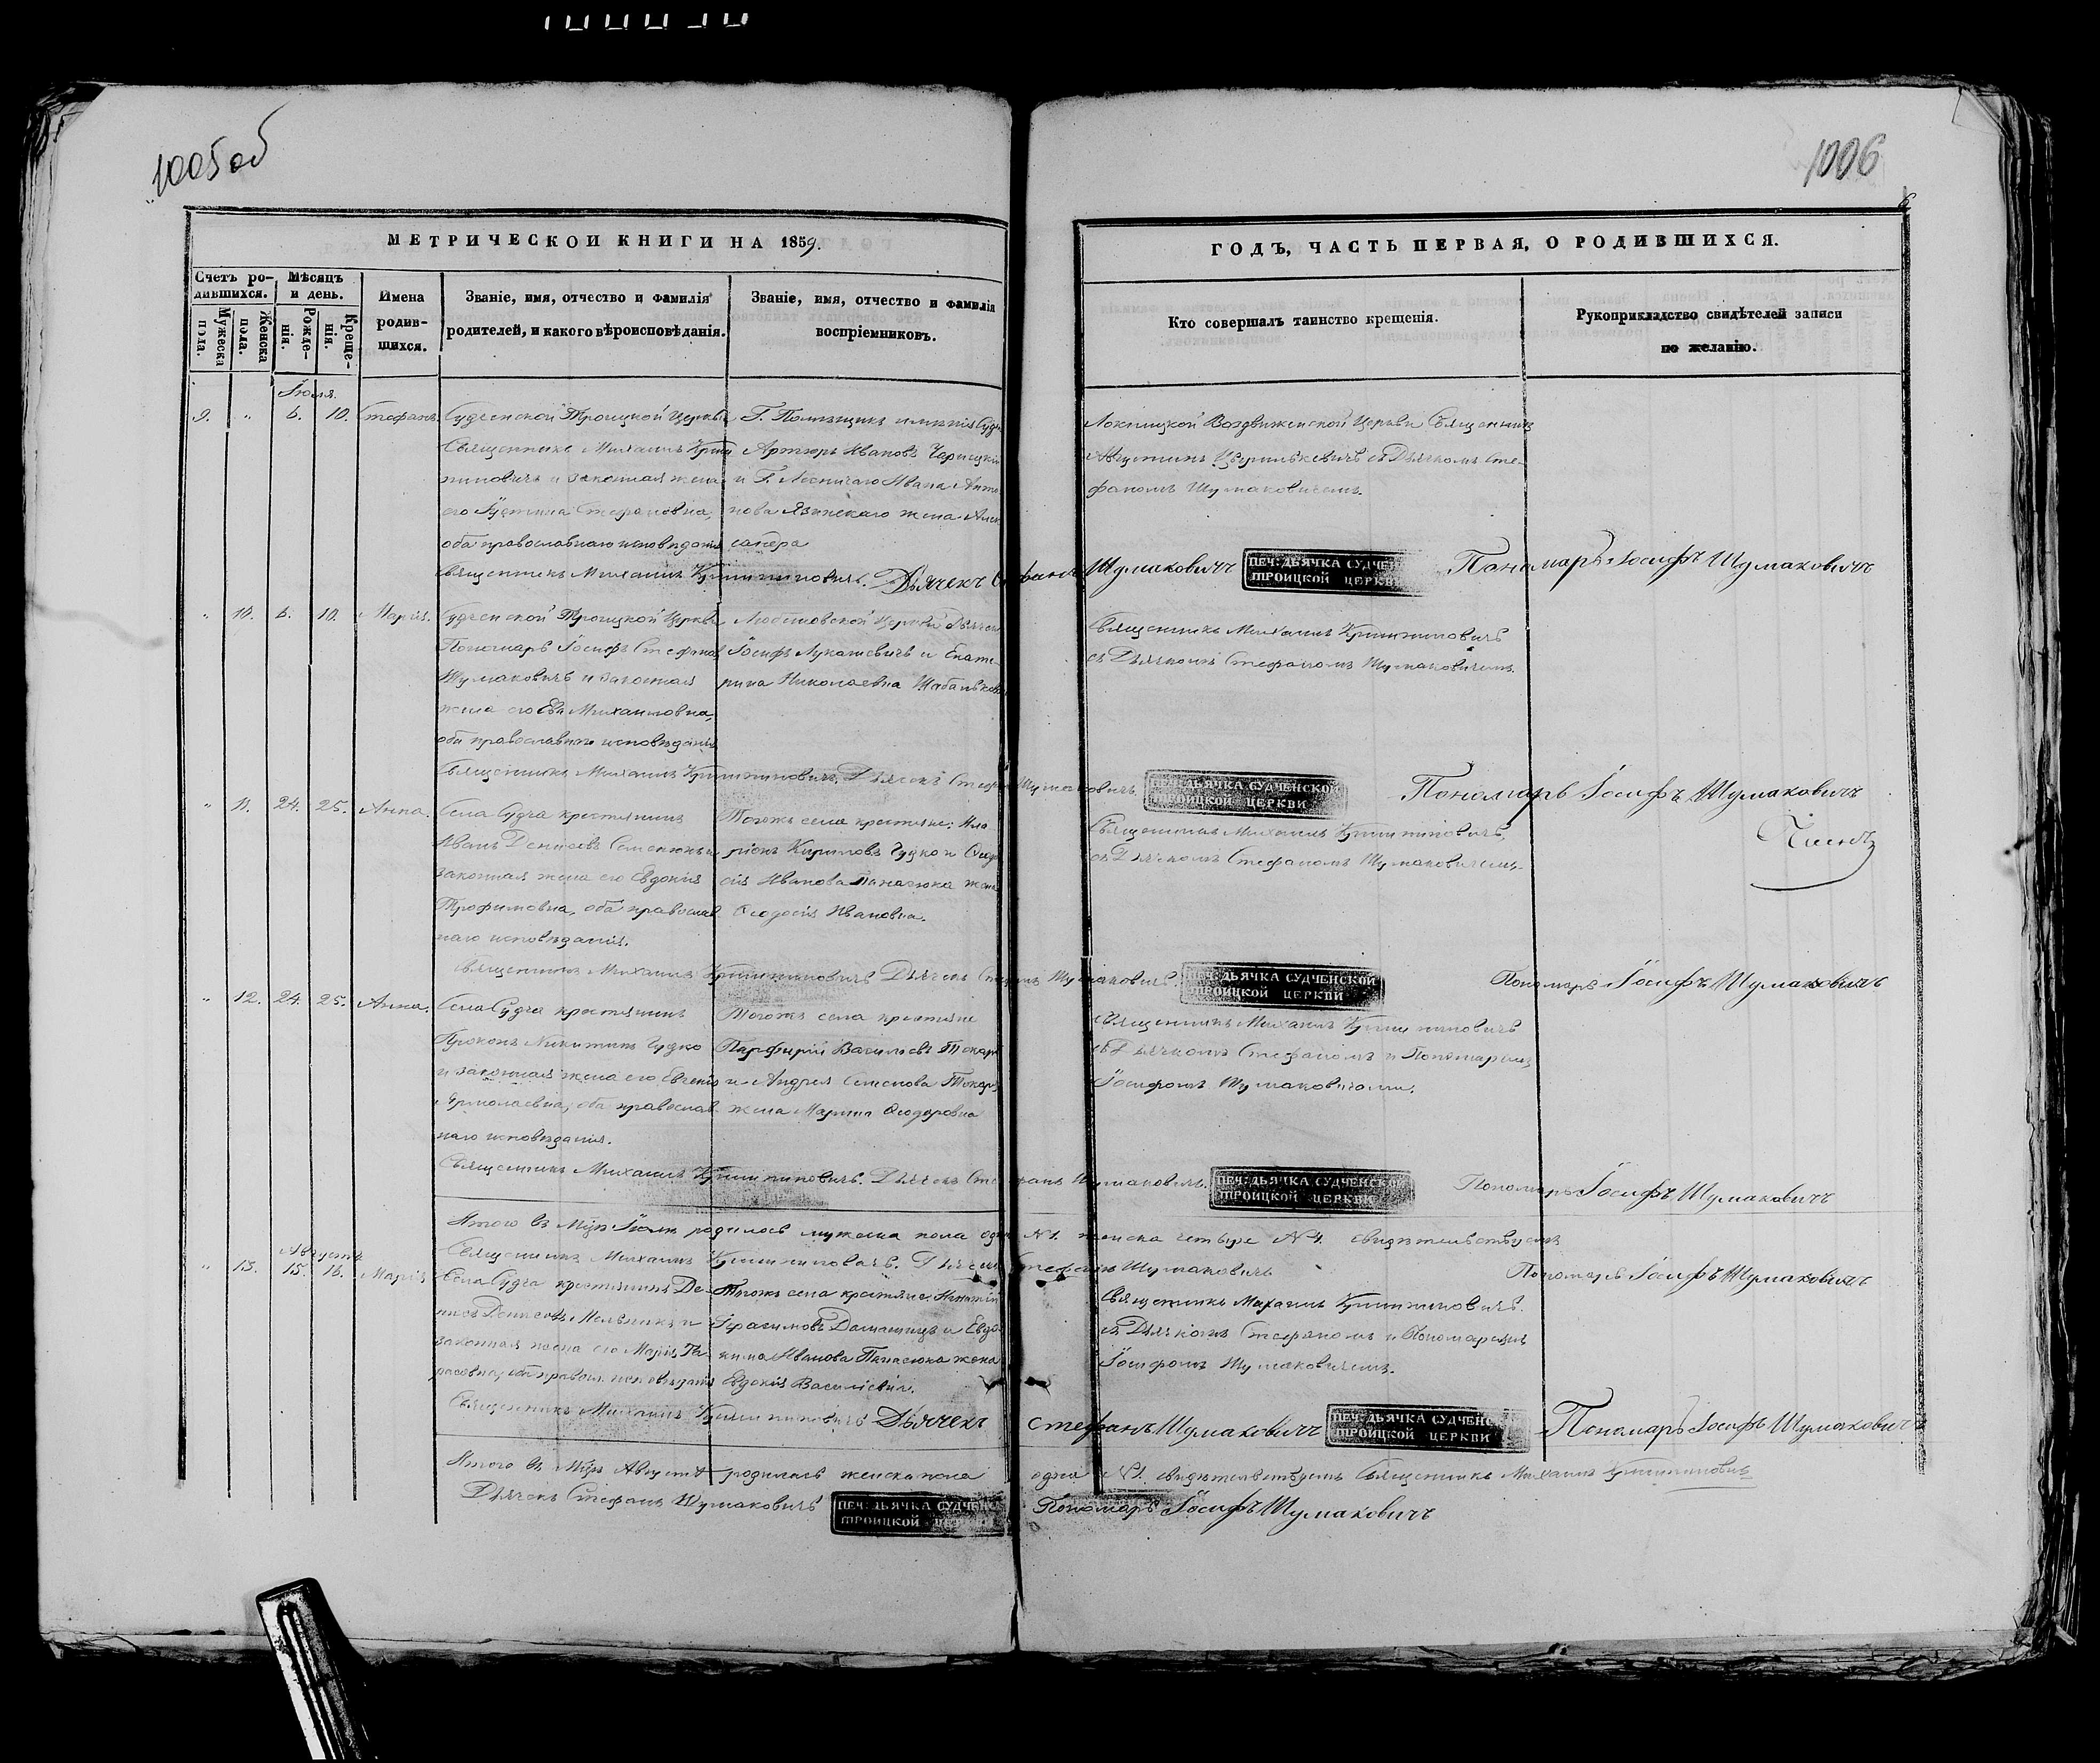 1005 об
1006
6
МЕТРИЧЕСКОЙ КНИГИ НА 1859.
ГОДЪ, ЧАСТЬ ПЕРВАЯ, О РОДИВШИХСЯ.
Счетъ ро-
дившихся.
Мѣсяцъ
и день.
Мужеска
пола.
Женска
пола.
Рожде-
нія.
Креще-
нія.
Имена
родив-
шихся.
Званіе, имя, отчество и фамилія
родителей, и какого вѣроисповѣданія.
Званіе, имя, отчество и фамилія
воспріемниковъ.
Кто совершалъ таинство крещенія.
Рукоприкладство свидѣтелей записи
по желанію.
Іюля.
9. " 6. 10. Стефанъ.
Судченской Троицкой Церкви
Священникъ Михаилъ
и законная жена
его Іустина Стефановна,
оба православнаго исповѣданія
Г. Помѣщикъ имѣнія
Артюръ Ивановъ
и Г. Лесничаго Ивана Анто
нова жена Алек
сандра
Воздвиженской Церкви Священникъ
Августинъ съ Дьячкомъ Сте-
фаномъ Шумаковичемъ.
Священникъ Михаилъ Дьячекъ Стефанъ Шумаковичъ
ПЕЧ: ДЬЯЧКА СУДЧЕН
ТРОИЦКОЙ ЦЕРКВИ
Пономарь Іосифъ Шумаковичъ
" 10. 6. 10. Марія.
Судченской Троицкой Церкви
Пономарь Іосифъ Стефановъ
Шумаковичъ и законная
жена его Ева Михаиловна,
оба православнаго исповѣданія
Церкви Дьячекъ
Іосифъ Лукашевичъ и Екате-
рина Николаевна
Священникъ Михаилъ
съ Дьячкомъ Стефаномъ Шумаковичемъ.
Священникъ Михаилъ Дьячекъ Стефанъ Шумаковичъ.
ПЕЧ: ДЬЯЧКА СУДЧЕНСКОЙ
ТРОИЦКОЙ ЦЕРКВИ
Пономарь Іосифъ Шумаковичъ
" 11. 24. 25. Анна.
Села Судча крестьянинъ
Иванъ Денисовъ Семенюкъ и
законная жена его Евдокія
Трофимовна, оба православ
наго исповѣданія.
Тогожъ села крестьяне: Ила
ріонъ Кириловъ Гудко и Ѳеодо
сія Иванова Панасюка жена
Ѳеодосія Ивановна.
Священникъ Михаилъ
съ Дьячкомъ Стефаномъ Шумаковичемъ.
Священникъ Михаилъ Дьячекъ Стефанъ Шумаковичъ.
ПЕЧ: ДЬЯЧКА СУДЧЕНСКОЙ
ТРОИЦКОЙ ЦЕРКВИ
Пономарь Іосифъ Шумаковичъ
" 12. 24. 25. Анна.
Села Судча крестьянинъ
Прокопъ Никитинъ Гудко
и законная жена его Евгенія
Ярмолаевна, оба православ-
наго исповѣданія.
Тогожъ села крестьяне
Парфирій Василіевъ Токарь
и Андрея Семенова Токаря
жена Марина Ѳеодоровна
Священникъ Михаилъ
съ Дьячкомъ Стефаномъ и Пономаремъ
Іосифомъ Шумаковичами.
Священникъ Михаилъ Дьячекъ Стефанъ Шумаковичъ.
ПЕЧ: ДЬЯЧКА СУДЧЕНСКОЙ
ТРОИЦКОЙ ЦЕРКВИ
Пономарь Іосифъ Шумаковичъ
Итого въ Мцѣ Іюлѣ родилось мужеска пола одинъ №1. женска четыре №4. свидѣтельствуемъ
Священникъ Михаилъ Дьячекъ Стефанъ Шумаковичъ
Пономарь Іосифъ Шумаковичъ
Августа
" 13. 15. 16. Марія
Села Судча крестьянинъ Де-
нисъ Денисовъ Мельникъ и
законная жена его Марія Та-
расовна, оба правосл. исповѣданія
Тогожъ села крестьяне: Игнатій
Герасимовъ и Евдо-
кима Иванова Панасюка жена
Евдокія Василіевна.
Священникъ Михаилъ
съ Дьячкомъ Стефаномъ и Пономаремъ
Іосифомъ Шумаковичемъ.
Священникъ Михаилъ Дьячекъ Стефанъ Шумаковичъ
ПЕЧ: ДЬЯЧКА СУДЧЕНС
ТРОИЦКОЙ ЦЕРКВИ
Пономарь Іосифъ Шумаковичъ
Итого въ Мцѣ Августѣ родилась женска пола одна №1. свидѣтельствуемъ Священникъ Михаилъ
Дьячекъ Стефанъ Шумаковичъ
ПЕЧ: ДЬЯЧКА СУДЧЕНС
ТРОИЦКОЙ ЦЕРКВИ
Пономарь Іосифъ Шумаковичъ